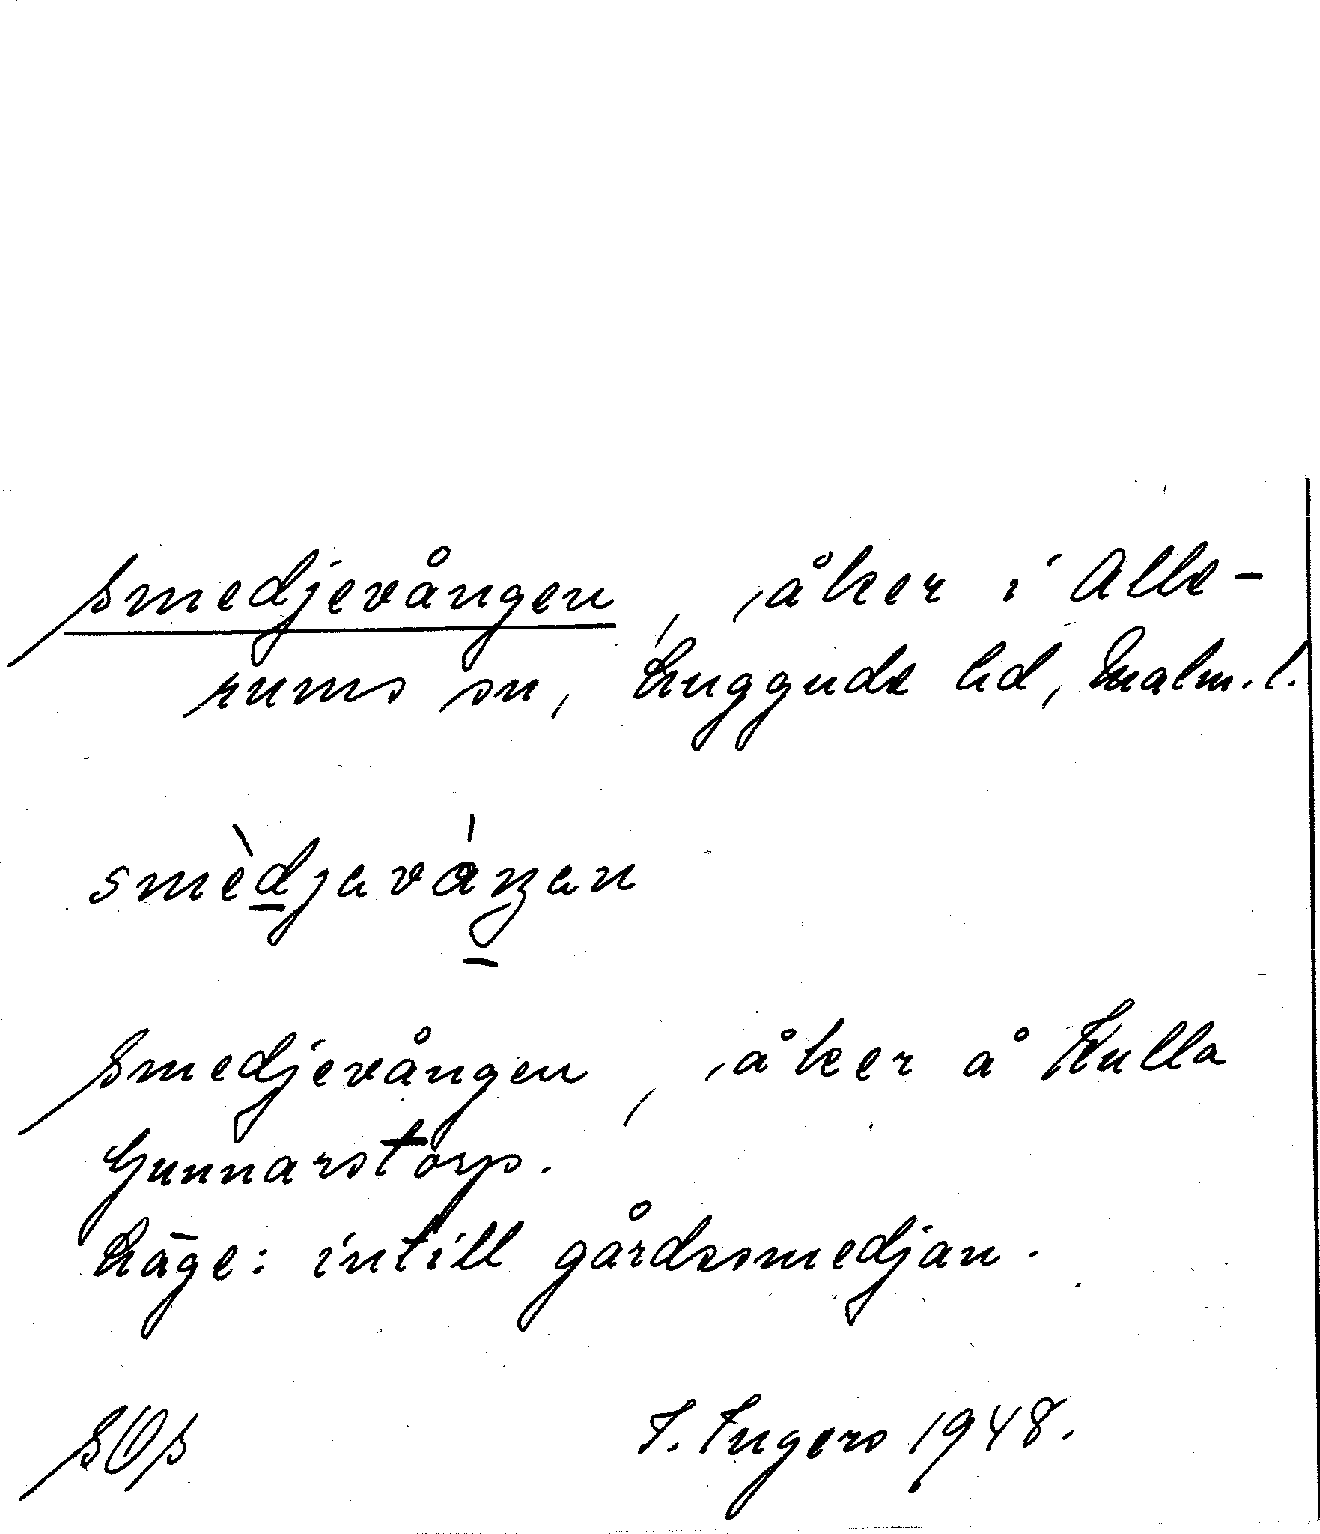 Smedjevången, åker i Alle-
rums sn, Luggude hd, Malm. l.
smèdjaváŋan
Smedjevången, åker å Kulla
Gunnarstorp.
Läge: intill gårdssmedjan.
SOS I. Ingers 1948.